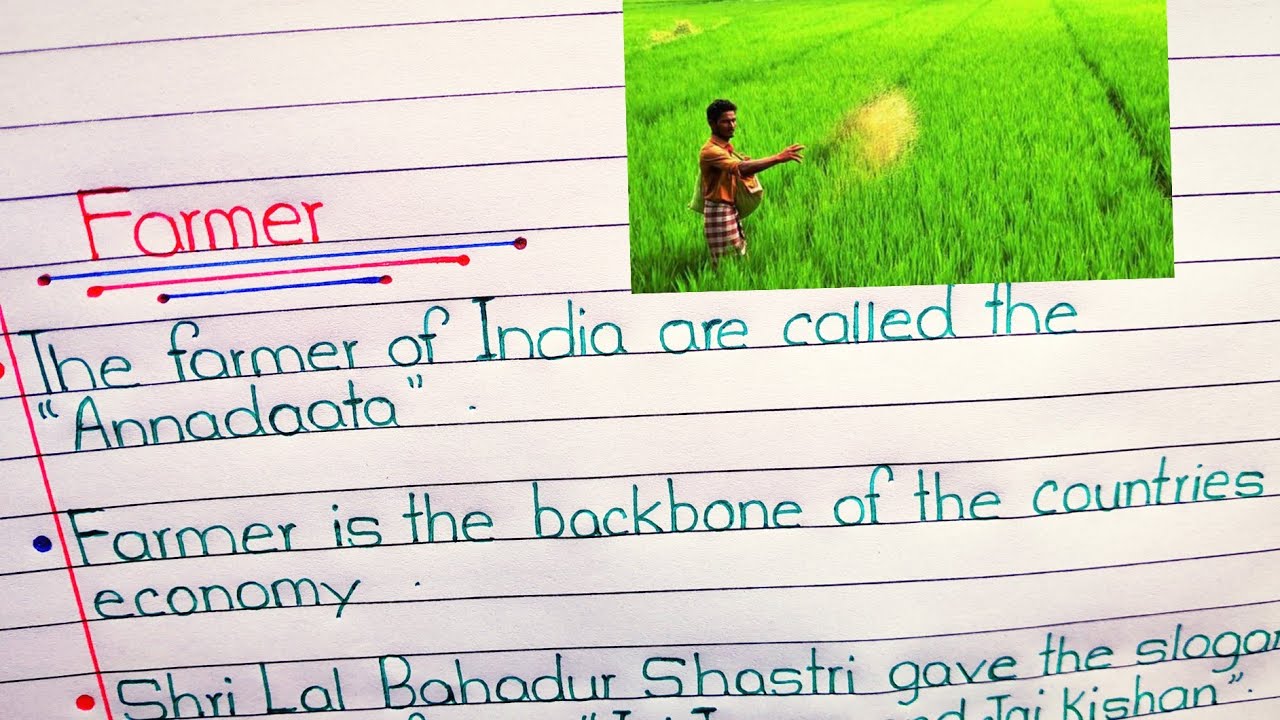 Farmer
The farmer of India are called the
"Annadaata".
Farmer is the backbone of the countries
economy.
Shri Lal Bahadur Shastri gave the slogan
Jai Kishan".